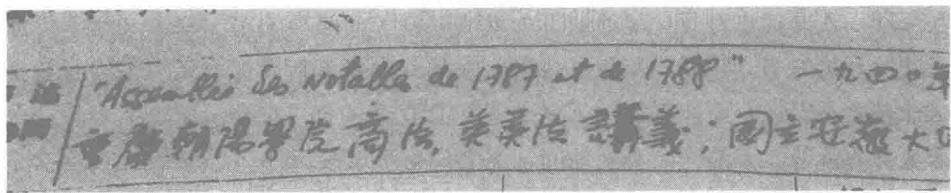 "Assemblée des Notables de 1787 et de 1788" 一九四〇年
重慶朝陽學院商法,英美法講義;國立安徽大